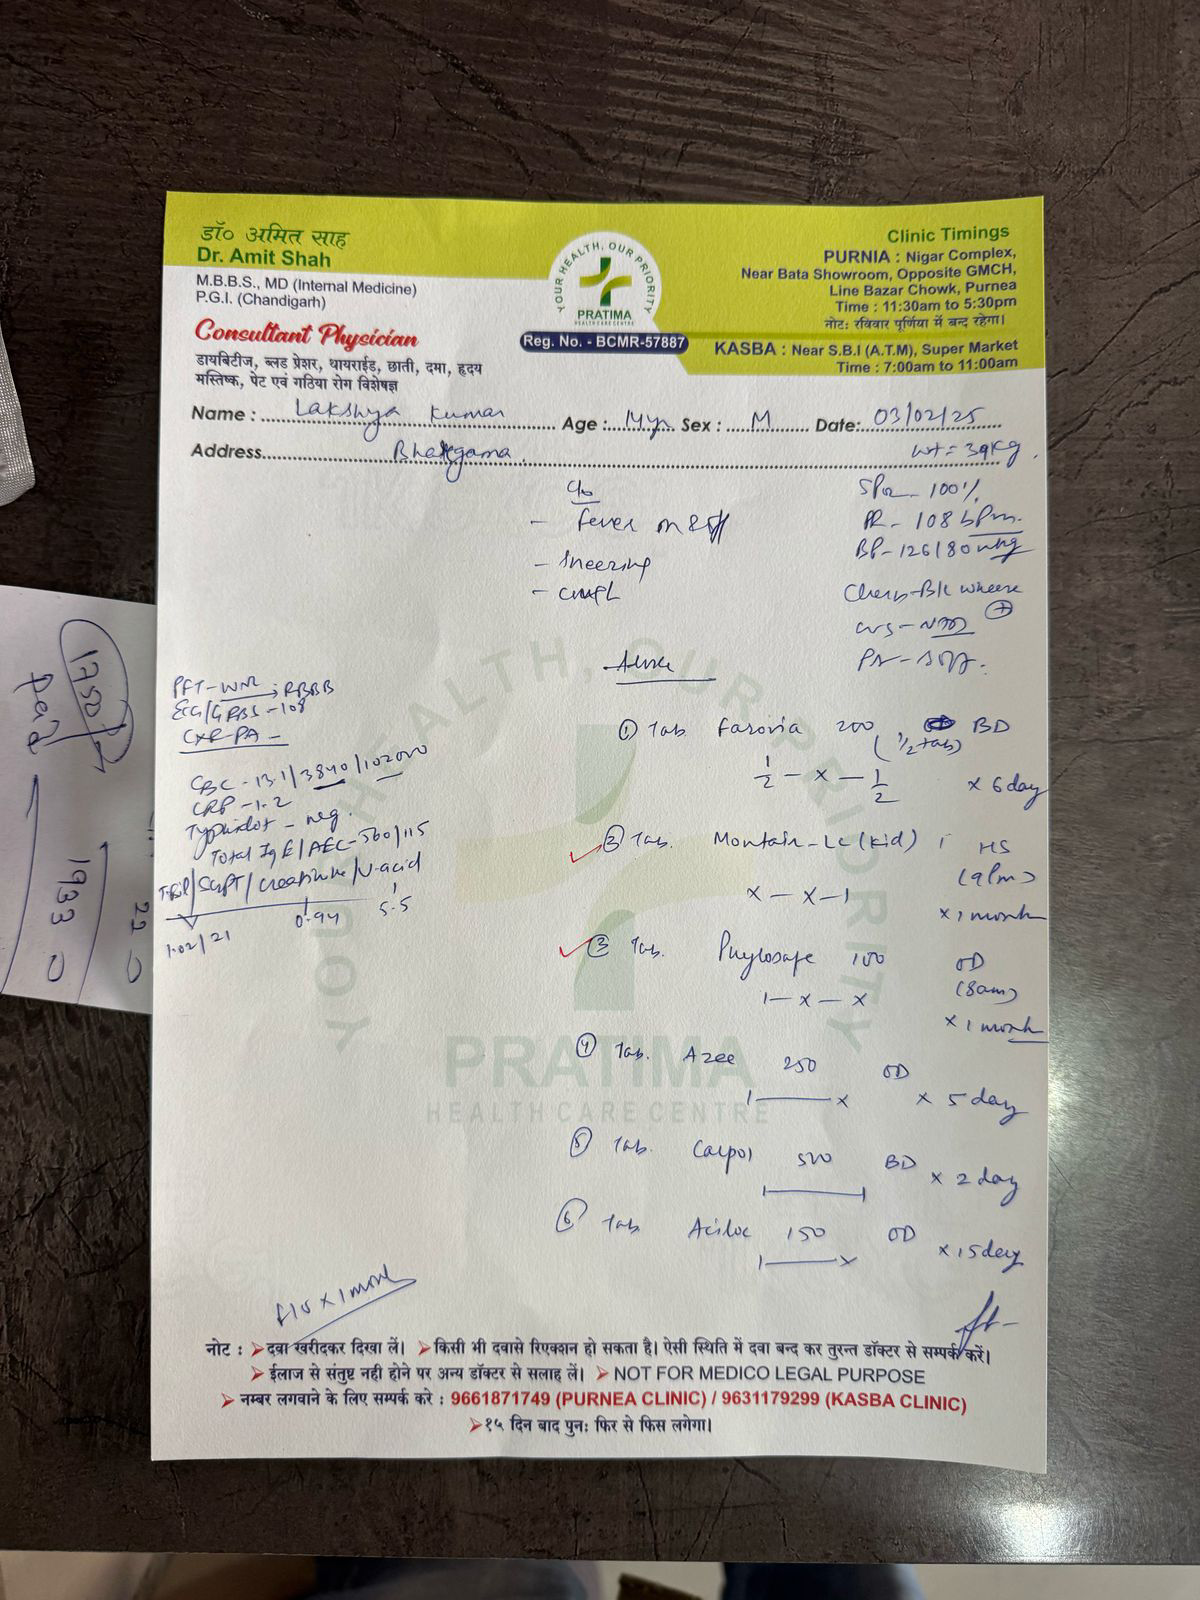 डॉ० अमित साह
Dr. Amit Shah
M.B.B.S., MD (Internal Medicine)
P.G.I. (Chandigarh)
Consultant Physician
डायबिटीज, ब्लड प्रेशर, थायराईड, छाती, दमा, हृदय
मस्तिष्क, पेट एवं गठिया रोग विशेषज्ञ
YOUR HEALTH, OUR PRIORITY
PRATIMA
HEALTH CARE CENTRE
Reg. No. - BCMR-57887
Clinic Timings
PURNIA : Nigar Complex,
Near Bata Showroom, Opposite GMCH,
Line Bazar Chowk, Purnea
Time : 11:30am to 5:30pm
नोट: रविवार पूर्णिया में बन्द रहेगा।
KASBA : Near S.B.I (A.T.M), Super Market
Time : 7:00am to 11:00am
Name : Lakshya Kumar Age : 14yr Sex : M Date: 03/02/25
Address
wt = 39kg
c/o
- fever on & off
- sneezing
- cough
SPO2 - 100%
PR - 108 bpm
BP - 126/80 mmhg
Chest - B/L wheeze +
CVS - NAD
PA - soft
Advice
PFT - WNL
ECG/GRBS - 108 ; RBBB
CXR-PA -
CBC - 13.1/3840/102000
CRP - 1.2
Typhidot - neg.
Total IgE/AEC - 560/115
T.Bil/SGPT/creatinine/U-acid
1.02/21 0.94 5.5
① Tab. Farovia 200 (1/2 tab) BD
1/2 - x - 1/2 x 6 day
② Tab. Montair-LC (kid) 1 HS
(9pm)
x - x - 1 x 1 month
③ Tab. Phylosafe 100 OD
(8am)
1 - x - x x 1 month
④ Tab. Azee 250 OD
1 — x x 5 day
⑤ Tab. Calpol 500 BD x 2 day
⑥ Tab. Aciloc 150 OD x 15 day
YOUR HEALTH, OUR PRIORITY
PRATIMA
HEALTH CARE CENTRE
f/u x 1 month
नोट : ➢दवा खरीदकर दिखा लें। ➢किसी भी दवासे रिएक्शन हो सकता है। ऐसी स्थिति में दवा बन्द कर तुरन्त डॉक्टर से सम्पर्क करें।
➢ईलाज से संतुष्ट नही होने पर अन्य डॉक्टर से सलाह लें। ➢NOT FOR MEDICO LEGAL PURPOSE
➢नम्बर लगवाने के लिए सम्पर्क करे : 9661871749 (PURNEA CLINIC) / 9631179299 (KASBA CLINIC)
➢१५ दिन बाद पुन: फिर से फिस लगेगा।
1750
Paid
1933
22